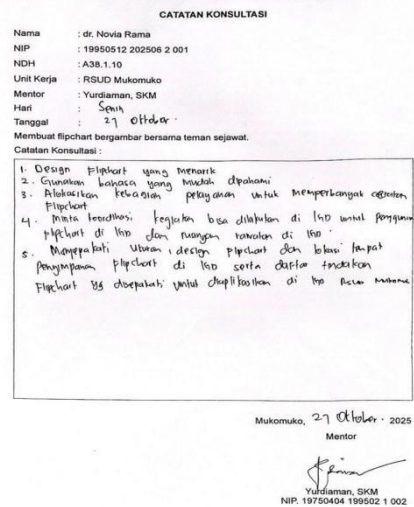 CATATAN KONSULTASI
Nama : dr. Novia Rama
NIP : 19950512 202506 2 001
NDH : A38.1.10
Unit Kerja : RSUD Mukomuko
Mentor : Yurdiaman, SKM
Hari : Senin
Tanggal : 27 Oktober.
Membuat flipchart bergambar bersama teman sejawat.
Catatan Konsultasi :
1. Design Flipchart yang menarik
2. Gunakan bahasa yang mudah dipahami
3. pelayanan untuk memperbanyak
Flipchart
4. Minta koordinasi kegiatan bisa dilakukan di IGD untuk
Flipchart di IGD dan ruangan di IGD.
5. Menyepakati ukuran, design flipchart dan lokasi tempat
Penyimpanan Flipchart di IGD serta daftar tindakan
Flipchart yg disepakati untuk diaplikasikan di IGD RSUD
Mukomuko, 27 Oktober. 2025
Mentor
Yurdiaman, SKM
NIP. 19750404 199502 1 002